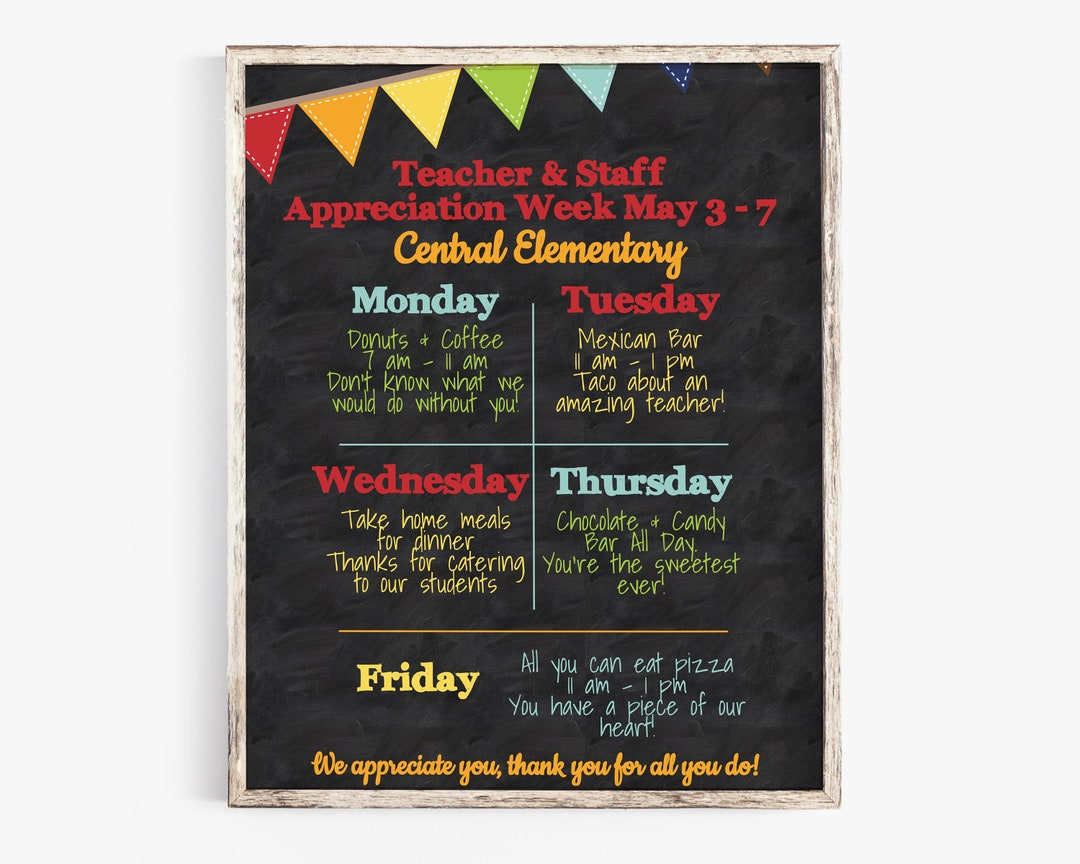 Teacher & Staff
Appreciation Week May 3 - 7
Central Elementary
Monday
Donuts & Coffee
7 am - 11 am
Don't know what we
would do without you!
Tuesday
Mexican Bar
11 am - 1 pm
Taco about an
amazing teacher!
Wednesday
Take home meals
for dinner
Thanks for catering
to our students
Thursday
Chocolate & Candy
Bar All Day.
You're the sweetest
ever!
Friday
All you can eat pizza
11 am - 1 pm
You have a piece of our
heart!
We appreciate you, thank you for all you do!